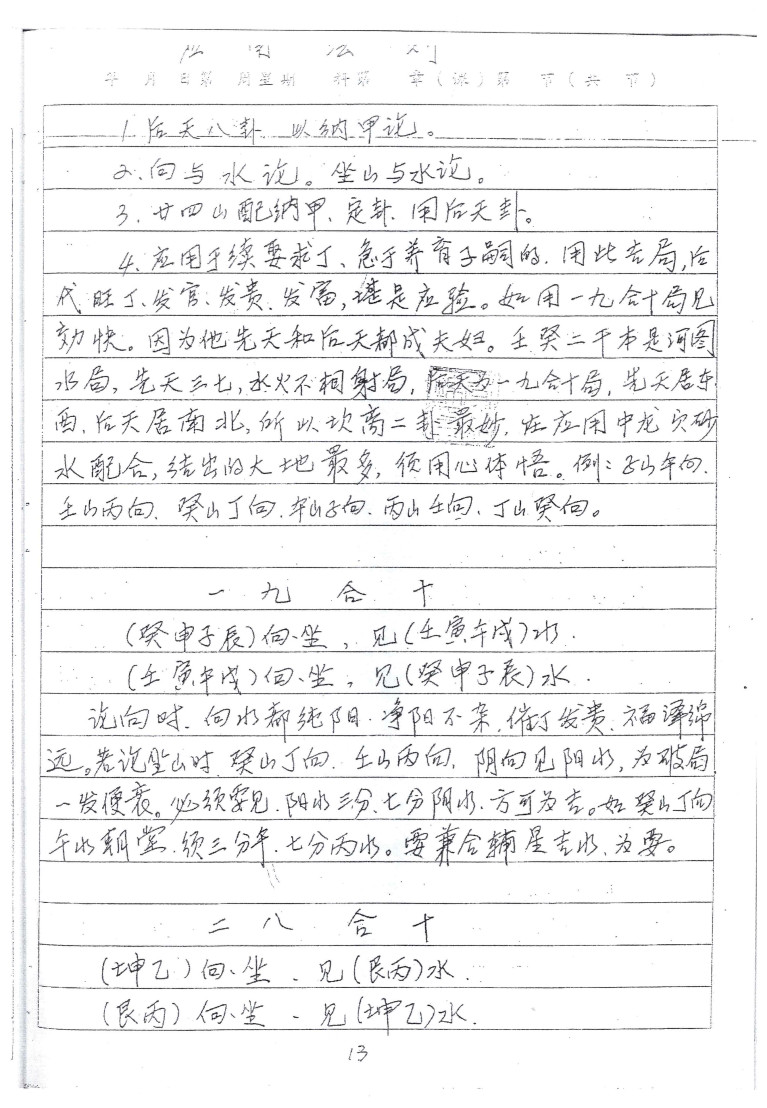 应用法则
年 月 日第 周星期 科第 章(课)第 节(共 节)
1. 后天八卦 以纳甲论。
2. 向与水论。坐山与水论。
3. 廿四山配纳甲、定卦、用后天卦。
4. 应用于续要求丁、急于养育子嗣的、用此吉局,后
代旺丁、发官、发贵、发富,谌是应验。如用一九合十局见
効快。因为他先天和后天都成夫妇。壬癸二干本是河图
水局,先天三七,水火不相射局,后天为一九合十局,先天居东
西、后天居南北,所以坎离二卦最妙,在应用中龙穴砂
水配合,结出的大地最多,须用心体悟。例:子山午向、
壬山丙向、癸山丁向、午山子向、丙山壬向、丁山癸向。
一九合十
(癸申子辰)向、坐,见(壬寅午戌)水.
(壬寅午戌)向、坐,见(癸申子辰)水.
论向时、向水都纯阳、净阳不杂,催丁发贵、福泽绵
远。若论坐山时、癸山丁向、壬山丙向、阴向见阳水,为破局
一发便衰。必须要见、阳水三分、七分阴水、方可为吉。如癸山丁向
午水朝堂、须三分午、七分丙水。要兼合辅星吉水、为要。
二八合十
(坤乙)向、坐、见(艮丙)水.
(艮丙)向、坐、见(坤乙)水.
13